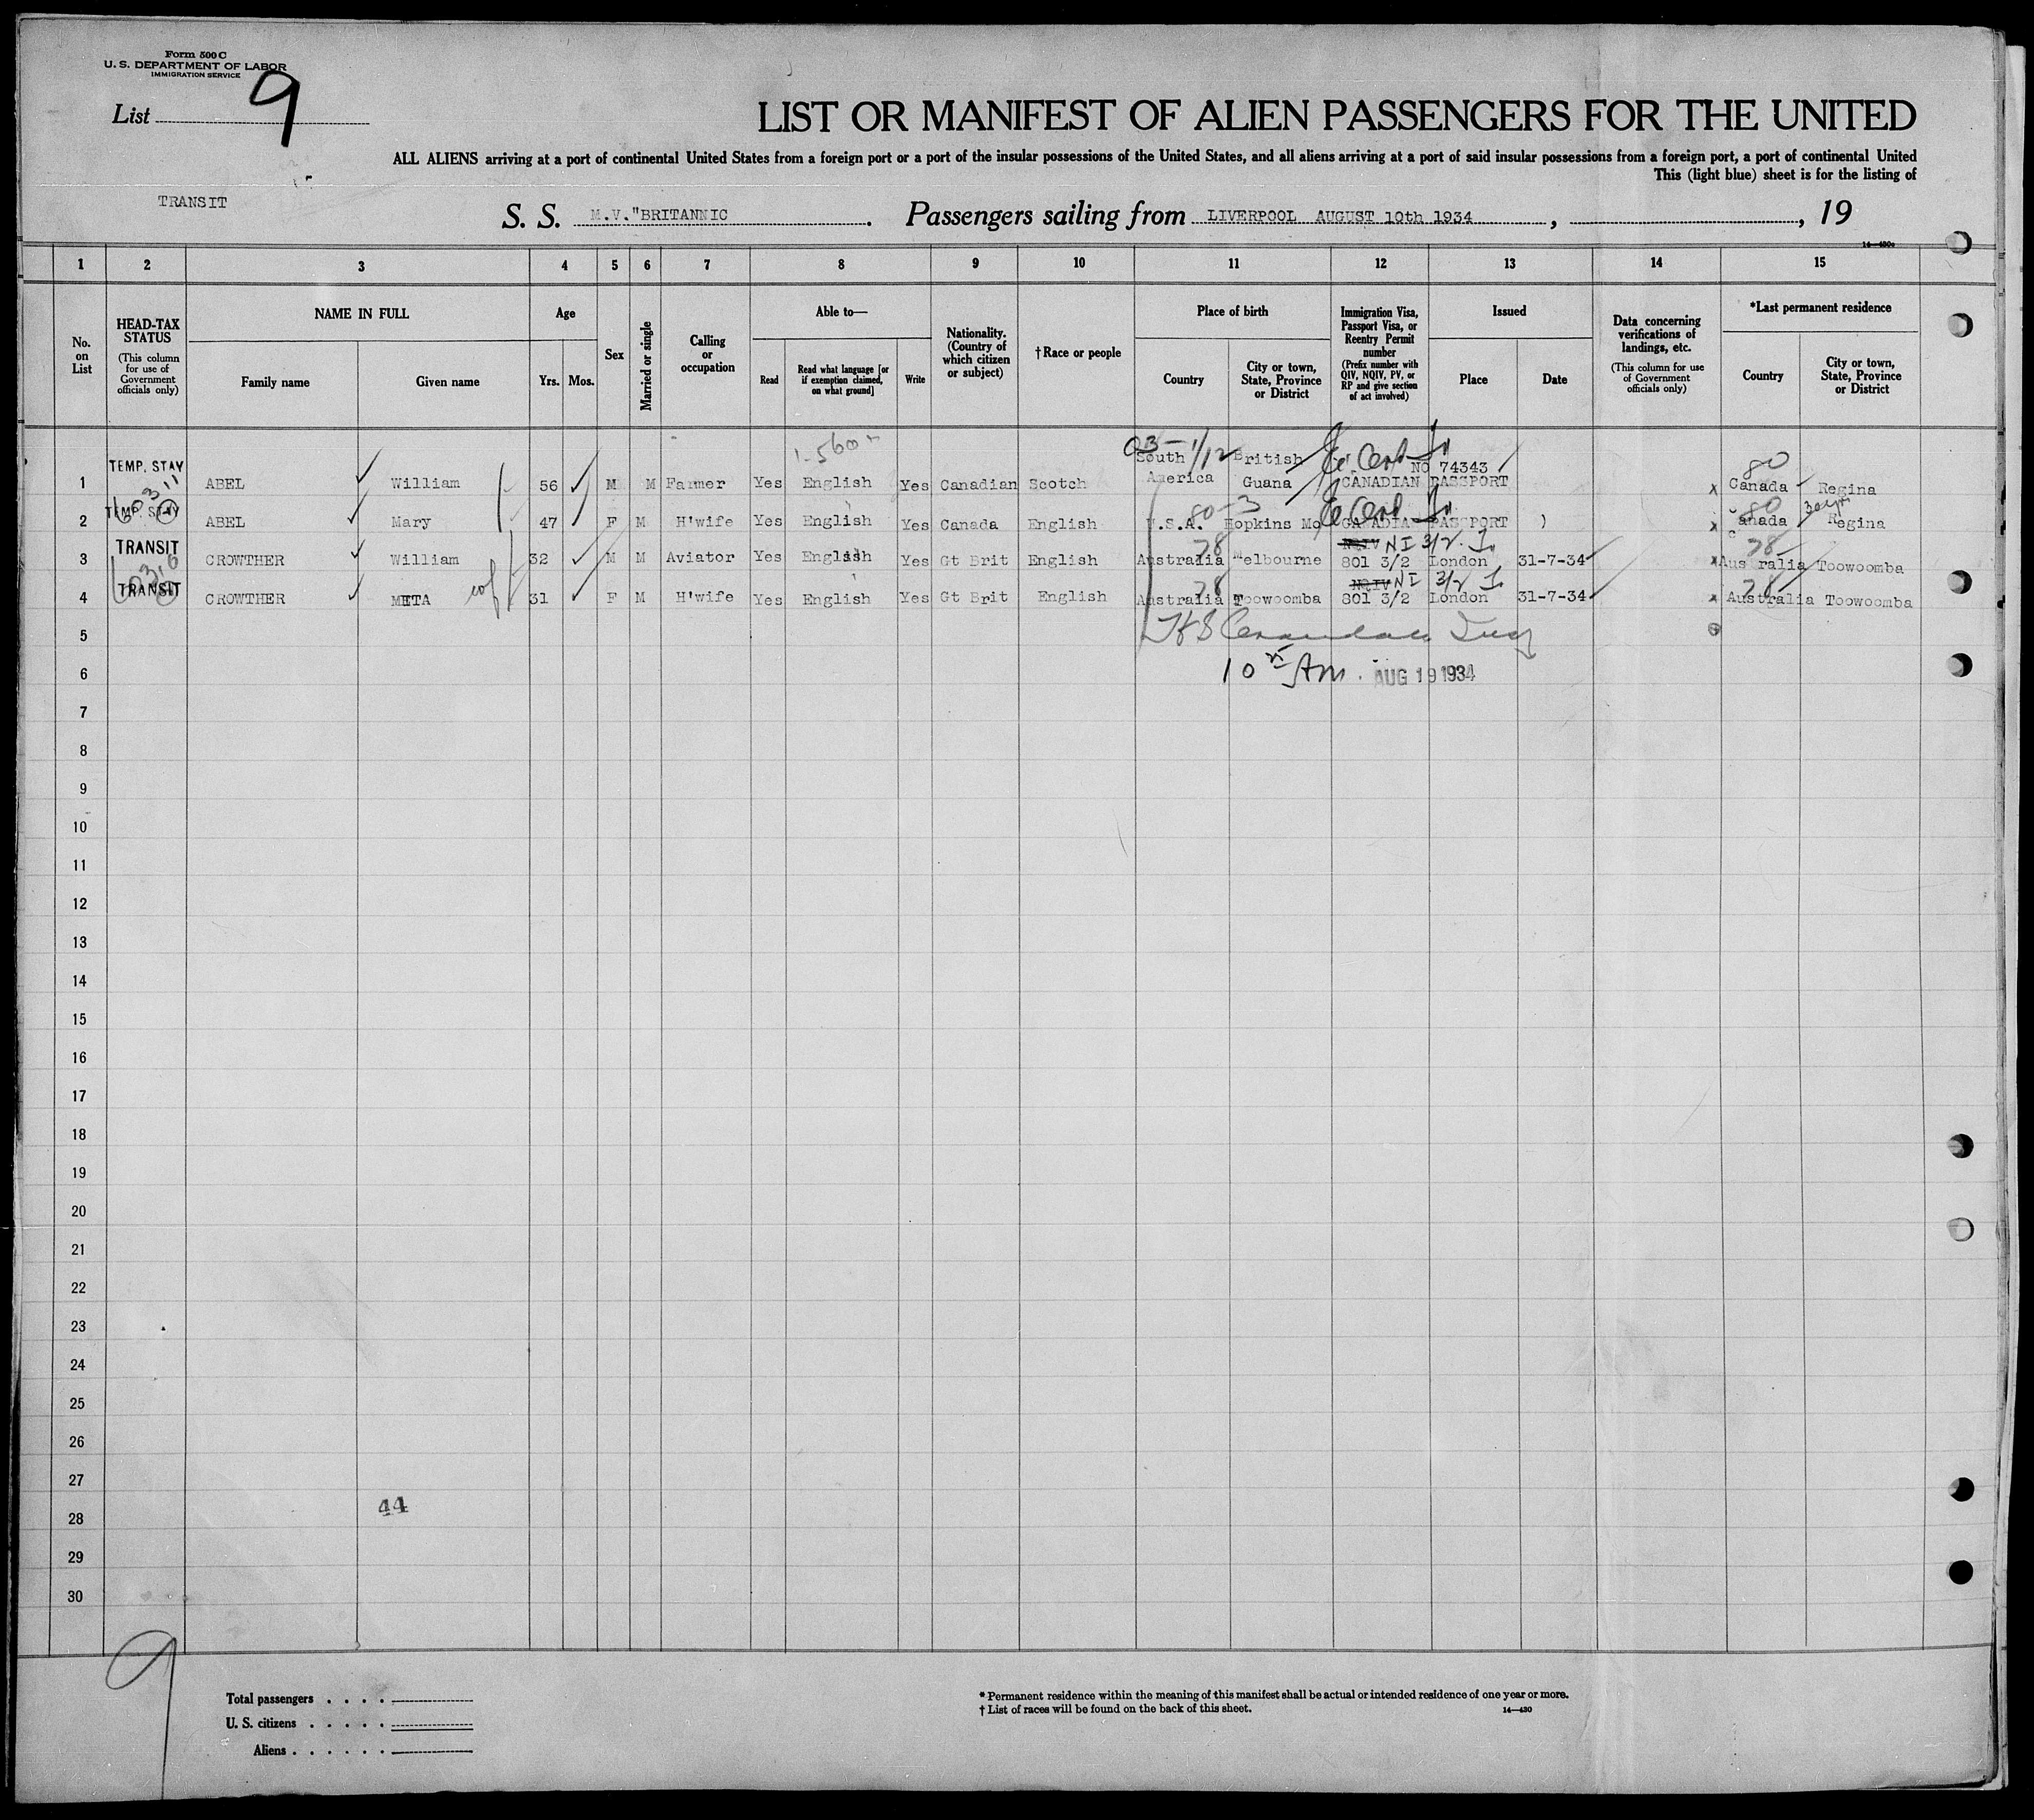 Form 500 C
U. S. DEPARTMENT OF LABOR
IMMIGRATION SERVICE
List 9
LIST OR MANIFEST OF ALIEN PASSENGERS FOR THE UNITED
ALL ALIENS arriving at a port of continental United States from a foreign port or a port of the insular possessions of the United States, and all aliens arriving at a port of said insular possessions from a foreign port, a port of continental United
This (light blue) sheet is for the listing of
TRANSIT
S. S. M.V."BRITANNIC . Passengers sailing from LIVERPOOL AUGUST 10th 1934 , , 19
14—480c
1 2 3 4 5 6 7 8 9 10 11 12 13 14 15
No. on List
HEAD-TAX STATUS (This column for use of Government officials only)
NAME IN FULL Family name Given name
Age Yrs. Mos.
Sex
Married or single
Calling or occupation
Able to— Read Read what language [or if exemption claimed, on what ground] Write
Nationality. (Country of which citizen or subject)
†Race or people
Place of birth Country City or town, State, Province or District
Immigration Visa, Passport Visa, or Reentry Permit number (Prefix number with QIV, NQIV, PV, or RP and give section of act involved)
Issued Place Date
Data concerning verifications of landings, etc. (This column for use of Government officials only)
*Last permanent residence Country City or town, State, Province or District
03- 1/12
1 TEMP. STAY ABEL William 56 M M Farmer Yes English Yes Canadian Scotch South America British Guana NO 74343 CANADIAN PASSPORT x 80 Canada Regina
2 TEMP. STAY ABEL Mary 47 F M H'wife Yes English Yes Canada English U.S.A. 80-3 Hopkins Mo CANADIAN PASSPORT ) x 80 Canada Regina
3 TRANSIT CROWTHER William 32 M M Aviator Yes English Yes Gt Brit English 78 Australia Melbourne NI 3/2 801 3/2 London 31-7-34 x 78 Australia Toowoomba
4 TRANSIT CROWTHER META 31 F M H'wife Yes English Yes Gt Brit English 78 Australia Toowoomba NI 3/2 801 3/2 London 31-7-34 x 78 Australia Toowoomba
5
6 10 Am. AUG 19 1934
7
8
9
10
11
12
13
14
15
16
17
18
19
20
21
22
23
24
25
26
27
44
28
29
30
9
Total passengers . . . .
U. S. citizens . . . . .
Aliens . . . . . .
* Permanent residence within the meaning of this manifest shall be actual or intended residence of one year or more.
† List of races will be found on the back of this sheet.
14—480